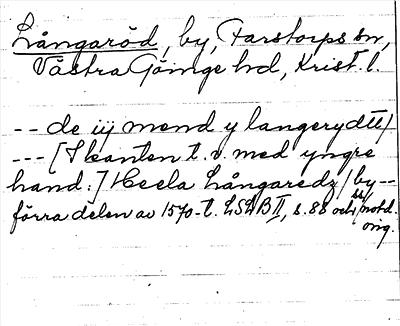 Långaröd, by, Farstorps sn,
Västra Göinge hd, Krist. l.
-- de iij mend y langerydtt/
--- [I kanten t. v. med yngre
hand:] Heela Långaredz/by--
förra delen av 1570-t. LSLB II, s. 88 och not d.
orig.